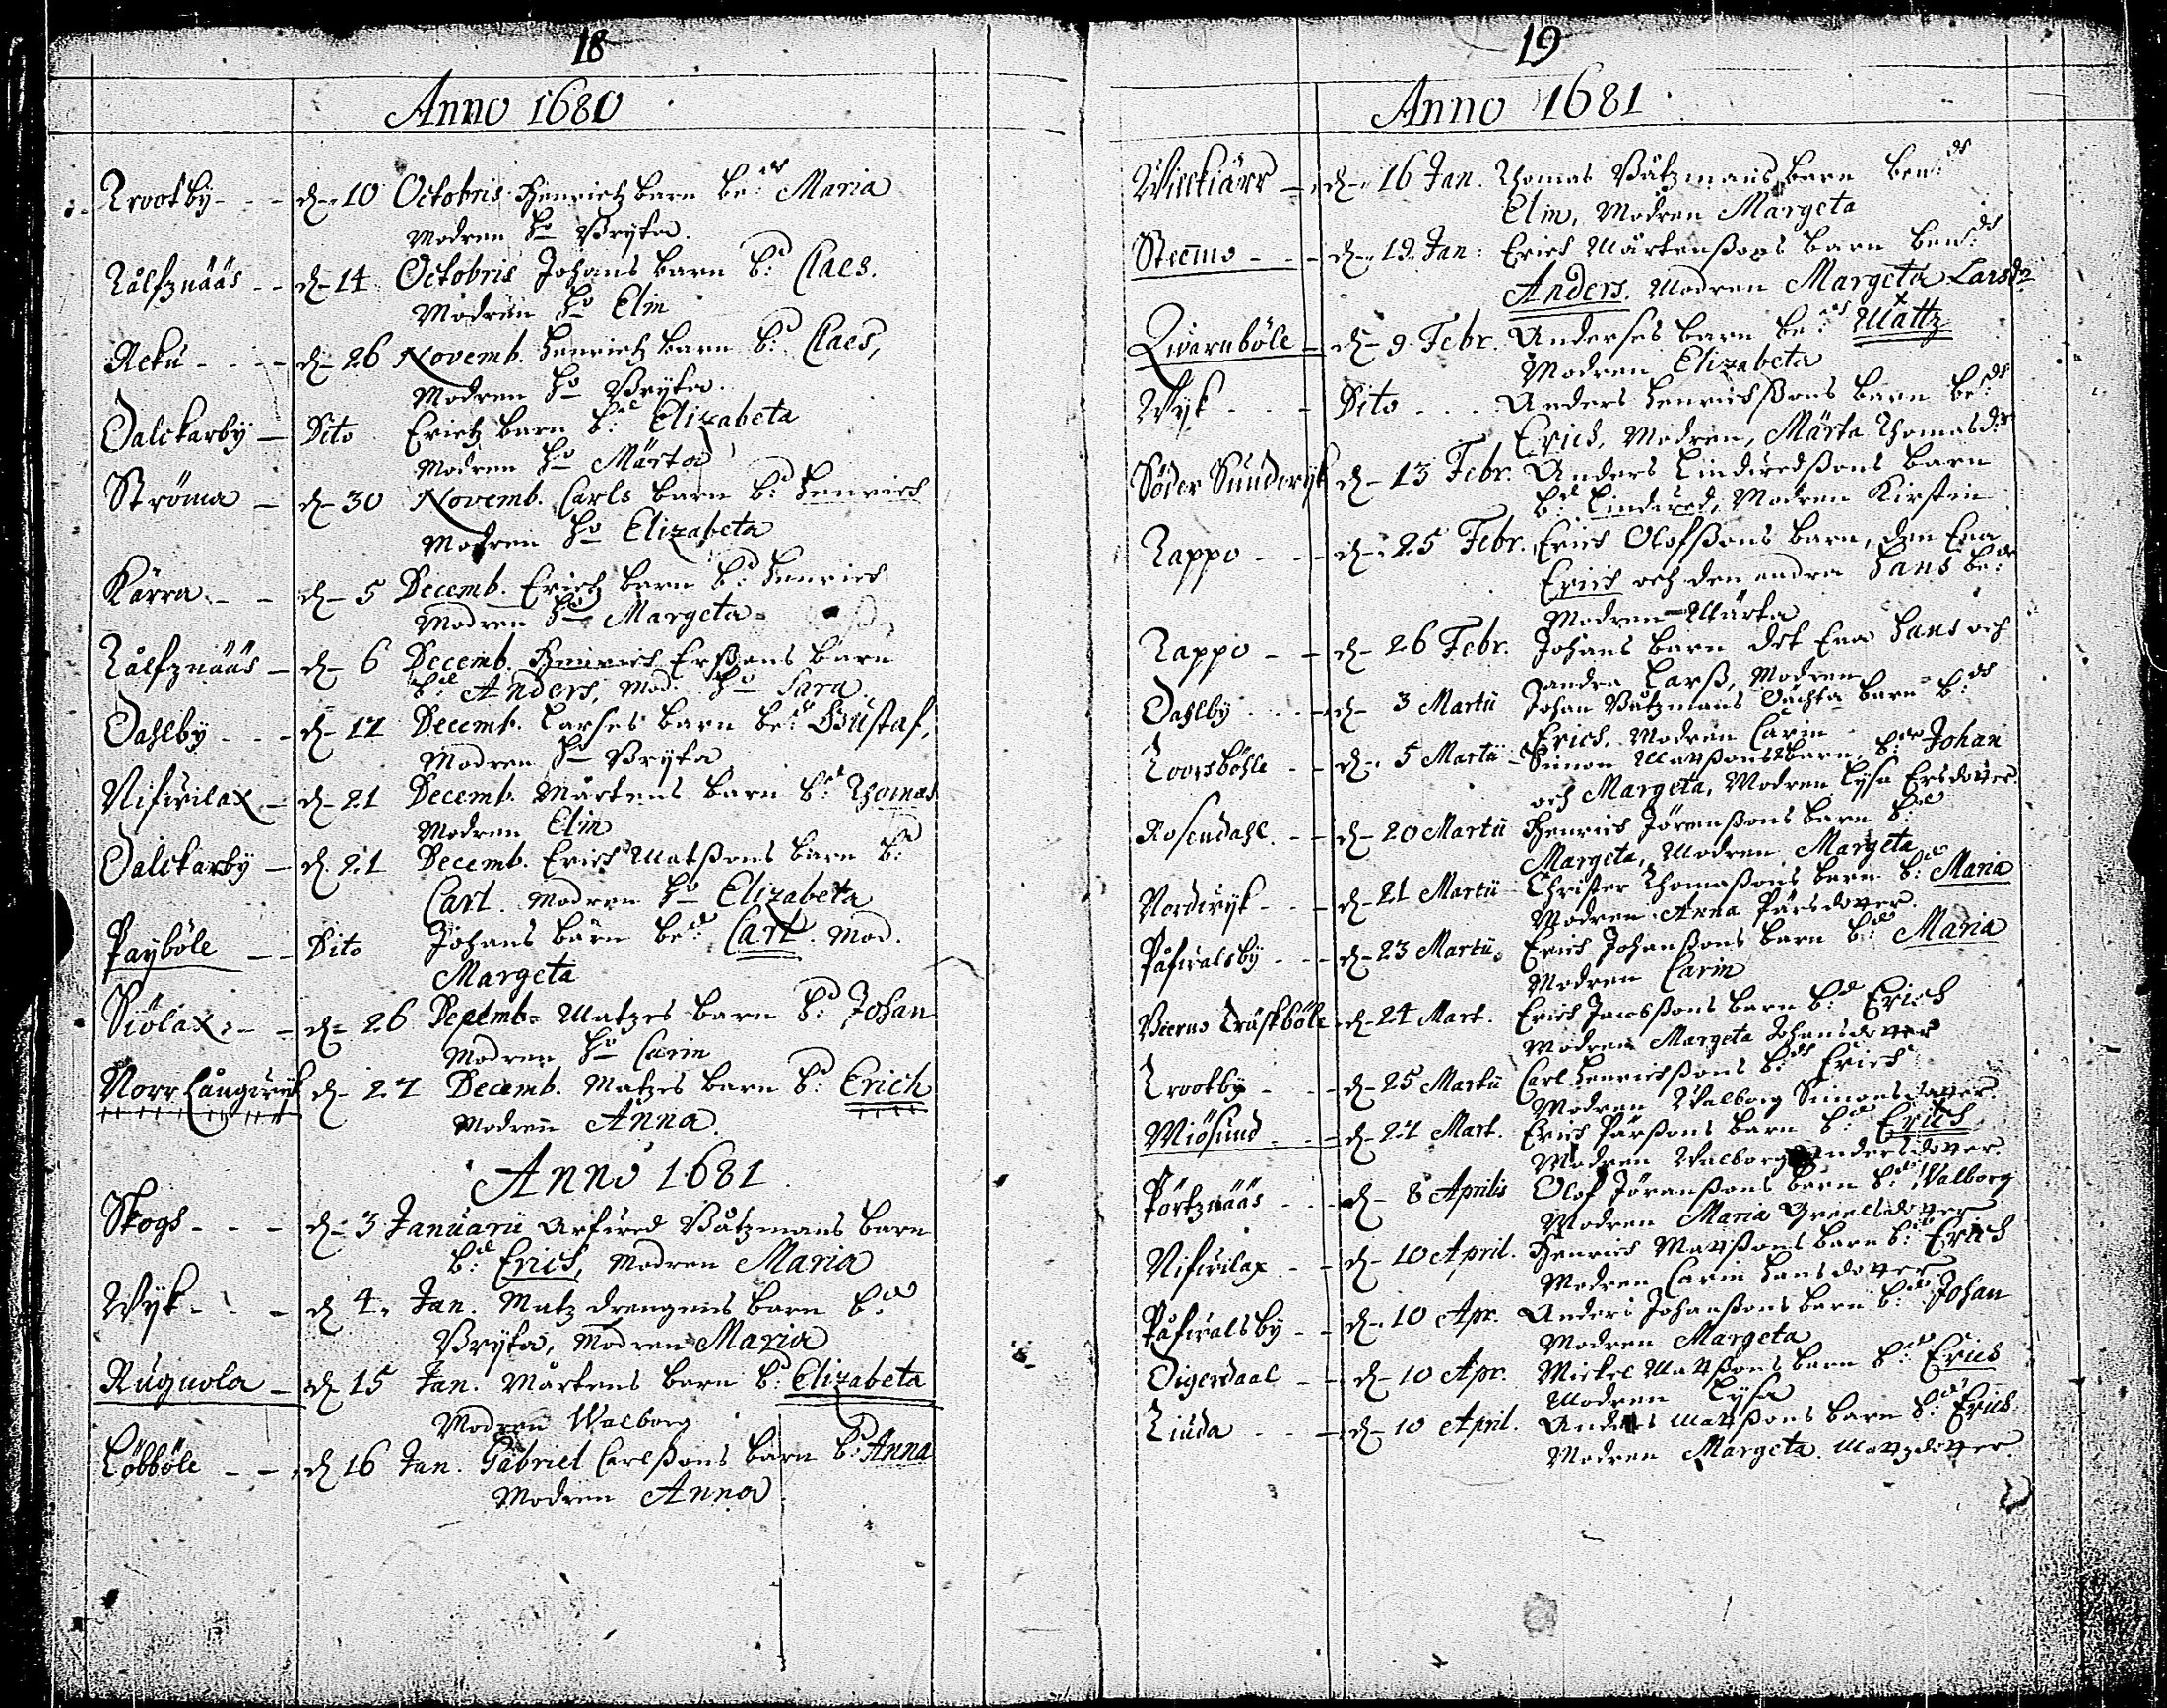 18
Anno 1680
Krookby - - - d. 10 Octobris Henrichz barn be:d Maria
Modren H:o Bryta.
Kålfznääs - - d. 14 Octobris Johans barn b:d Claes.
Modren H:o Elin
Reku - - - - d. 26 Novemb. Henrichz barn b:d Claes,
Modren H:o Bryta.
Dalckarby - Dito Erichz barn b:d Elizabeta
Modren H:o Märta
Ströma - d. 30 Novemb. Carls barn b:d Henrich
Modren H:o Elizabeta
Kärra - - d. 5 Decemb. Erichz barn b:d Henrich
Modren H:o Margeta
Kålfznääs - d. 6 Decemb. Henrich Erßons barn
b:d Anders, Mod. H:o Sara.
Dahlby - - - d. 17 Decemb. Larses barn be:d Gustaf,
Modren H:o Bryta
Nifwilax - d. 21 Decemb. Mårtens barn b:d Thomas
Modren Elin
Dalckarby - d. 21 Decemb. Erich Matßons barn b:d
Carl. Modren H:o Elizabeta
Payböle - - Dito Johans barn be:d Carl. Mod.
Margeta
Siölax - - d. 26 Decemb. Matzes barn b:d Johan
Modren H:o Carin
Norr Långwijk d. 27 Decemb. Matzes barn b:d Erich
Modren Anna.
Anno 1681
Skogs - - - d. 3 Januarii Arfwed Båtzmans barn
b:d Erich, Modren Maria
Wyk - - - d. 4. Jan. Matz drengens barn b:d
Bryta, Modren Maria
Rugnola - d. 15 Jan. Mårtens barn b:d Elizabeta
Modren Walborg
Löbböle - - d. 16 Jan. Gabriel Carlßons barn b:d Anna
Modren Anna
19
Anno 1681
Willkiärr - d. 16 Jan. Thomas Båtzmans barn ben:d
Elin, Modren Margeta
Steenmo - - - d. 19. Jan: Erich Mårtenßons barn ben:d
Anders. Modren Margeta Larsdr
Qwarnböle - d. 9 Febr. Anderses barn be:d Mattz
Modren Elizabeta
Wyk - - - Dito - - - Anders Henrichßons barn be:d
Erich, Modren, Märta Thomasdr
Söder Sundwyk d. 13 Febr. Anders Lindwedßons barn
b:d Lindwed, Modren Kirstin
Kappo - - - d. 25 Febr. Erich Olofßons barn, den Ena
Erich och den andra Hans be:d
Modren Märta
Kappo - - d. 26 Febr. Johans barn det Ena Hans och
andra Larß, Modren
Dahlby - - - d. 3 Martii Johan Båtzmans barn b:d
Erich. Modren Carin
Koorsböhle - - d. 5 Martii Simon Mattßons barn b:d Johan
och Margeta, Modren Lysa Ersdotter
Rosendahl - - d. 20 Martii Henrich Jörenßons barn b:d
Margeta, Modren Margeta
Nordwyk - - d. 21 Martii Christer Thomaßons barn b:d Maria
Modren Anna Pärsdotter.
Påfwalsby - - d. 23 Martii Erich Johanßons barn b:d Maria
Modren Carin
Bierno Träskböle d. 24 Mart. Erich Jacobßons barn b:d Erich
Modren Margeta Johansdotter
Krookby - - d. 25 Martii Carl Henrichßons b:d Erich
Modren Walborg Simonsdotter.
Miösund - - d. 27 Mart. Erich Pärßons barn b:d Erich
Modren Walborg Andersdotter.
Pörtznääs - - - d. 8 Aprilis Olof Jöranßons barn b:d Walborg
Modren Maria
Nifwilax - - d. 10 April. Henrich Mattßons barn b:d Erich
Modren Carin Hansdotter
Påfwalsby - - d. 10 Apr. Anders Johanßons barn b:d Johan
Modren Margeta
Digerdaal - - d. 10 Apr. Mickel Mattßons barn b:d Erich
Modren Lysa
Kiuda - - - d. 10 April. Anders Mattßons barn b:d Erich
Modren Margeta Mattzdotter